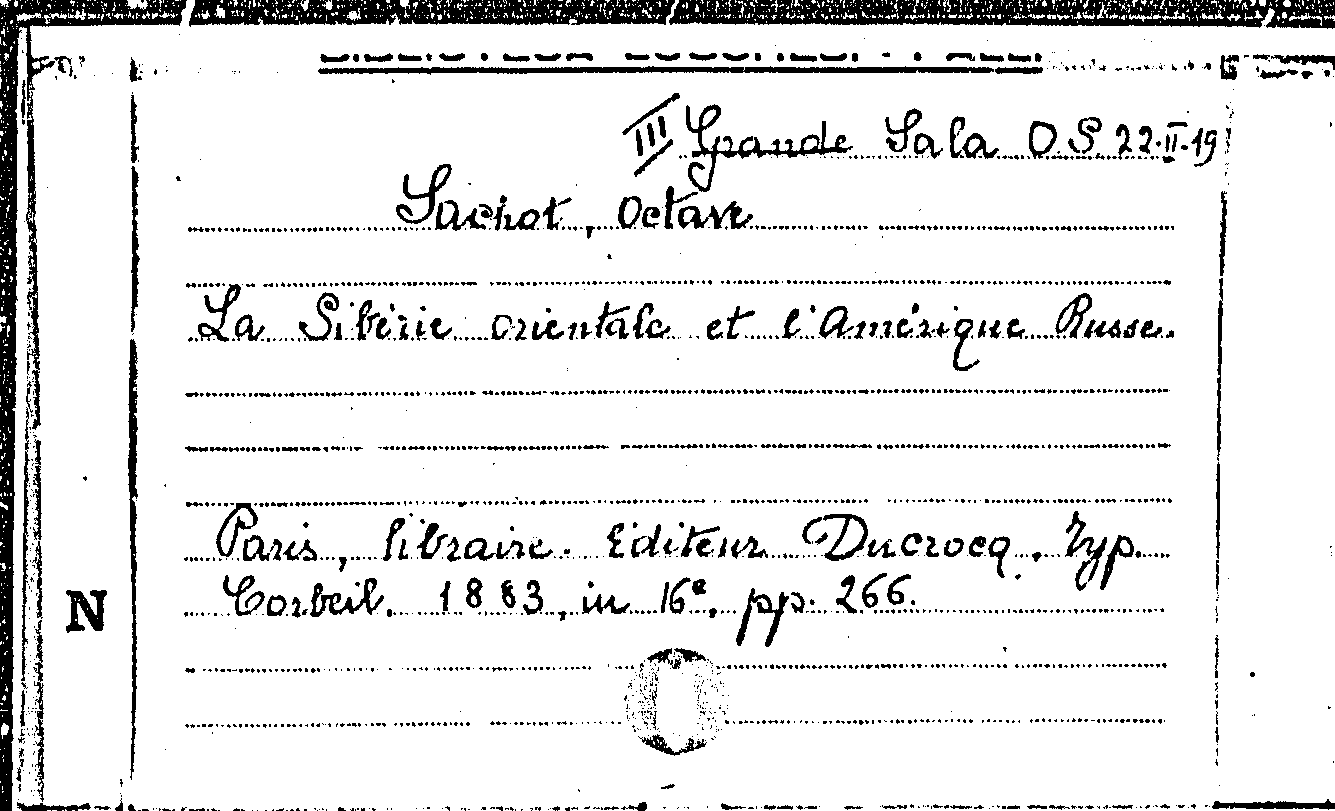 III Grande Sala O.S. 22-II-19
Sachot, Octave
La Sibérie orientale et l'Amérique Russe.
Paris, libraire. Editeur Ducrocq. Typ.
Corbeil. 1883, in 16º, pp. 266.
N